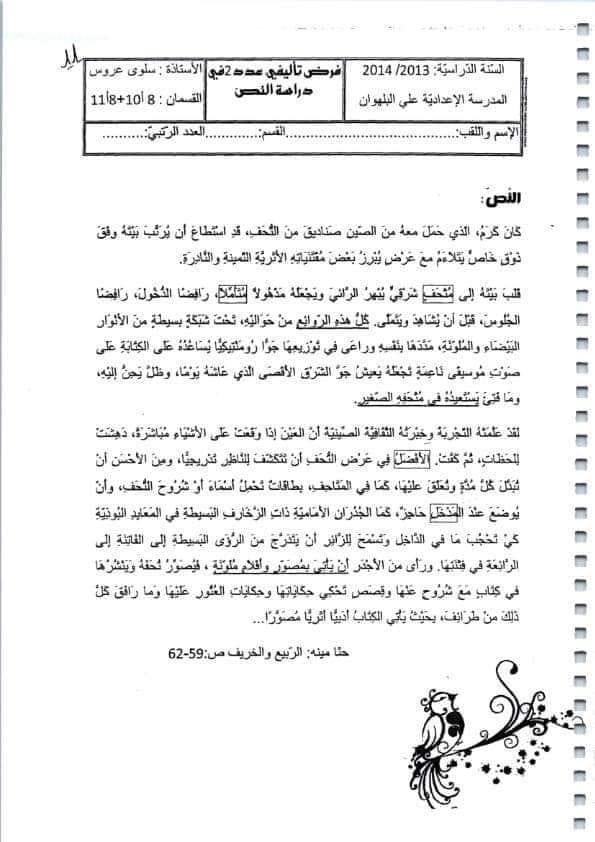 السّنة الدّراسيّة: 2013/ 2014
المدرسة الإعداديّة علي البلهوان
فرض تأليفي عدد2في
دراسة النص
الأستاذة : سلوى عروس
القسمان : 8 أ10+8أ11
الإسم واللقب:..........................................القسم:.............العدد الرّتبيّ:..........
النّصّ:
كَانَ كَرَمُ، الذي حَمَلَ معهُ منَ الصّين صَنَاديقَ منَ التُّحَفِ، قَدِ اسْتطَاعَ أن يُرَتّبَ بَيْتَهُ وفْقَ
ذَوْقٍ خَاصٍّ يَتَلاَءَمُ معَ عَرْضٍ يُبْرزُ بَعْضَ مُقْتَنَيَاتِهِ الأثريَّةِ الثّمينةِ والنّادرَةِ.
قلبَ بَيْتَهُ إلى مُتْحَفٍ شَرْقيٍّ يُبْهِرُ الرّائيَ ويَجْعَلُهُ مَذْهُولاً مُتَأَمِّلاً، رَافِضًا الدُّخُولَ، رَافِضًا
الجُلُوسَ، قَبْلَ أنْ يُشَاهِدَ ويَتَمَلَّى. كُلُّ هذهِ الرّوائِعِ منْ حَوَاليْهِ، تَحْتَ شَبَكَةٍ بسيطَةٍ منَ الأنْوَارِ
البَيْضَاءِ والمُلوّنَةِ، مَدَّدَهَا بنَفْسِهِ وراعَى في تَوْزيعِهَا جَوًّا رُومَنْتِيكِيًّا يُسَاعِدُهُ عَلَى الكِتَابَةِ عَلَى
صَوْتِ مُوسيقَى نَاعِمَةٍ تَجْعَلُهُ يَعيشُ جَوَّ الشّرْقِ الأقْصَى الّذي عَاشَهُ يَوْمًا، وظَلَّ يَحِنُّ إليْهِ،
ومَا فَتِئَ يَسْتَعِيدُهُ فِي مُتْحَفِهِ الصّغيرِ.
لقدْ عَلَّمَتْهُ التّجْرِبَةُ وخِبْرَتُهُ الثّقافيَّةُ الصّينيّةُ أنّ العَيْنَ إذَا وقَعَتْ عَلَى الأشْيَاءِ مُبَاشَرَةً، دَهِشَتْ
لِلَحَظَاتٍ، ثُمَّ كَلَّتْ. الأفْضَلُ في عَرْضِ التُّحَفِ أنْ تَتَكَشَّفَ لِلنّاظِرِ تَدْريجيًّا، ومِنَ الأحْسَنِ أنْ
تُبْتَذَلَ كُلُّ مُدَّةٍ وتُعَلّقَ عليْهَا، كَمَا فِي المَتَاحِفِ، بطَاقَاتٌ تَحْمِلُ أسْمَاءَ أوْ شُرُوحَ التُّحَفِ، وأنْ
يُوضعَ عنْدَ المَدْخَلِ حَاجِزٌ، كَمَا الجُدْرَانُ الأمَاميَّةُ ذَاتِ الزّخَارِفِ البَسيطَةِ في المَعَابِدِ البُوذيَّةِ
كَيْ تَحْجُبَ مَا في الدّاخِلِ وتَسْمَحَ لِلزّائِرِ أنْ يَتَدَرَّجَ منَ الرُّؤَى البَسيطَةِ إلى الفَاتِنَةِ إلى
الرّائعَةِ في فِتْنَتِهَا. ورأى منَ الأجْدَرِ أنْ يَأْتِيَ بِمُصَوِّرٍ وأفْلاَمٍ مُلَوّنَةٍ ، فَيُصَوِّرُ تُحَفَهُ ويَنْشُرُهَا
في كتَابٍ مَعَ شُرُوحٍ عَنْهَا وقِصَصٍ تَحْكِي حِكَايَاتِهَا وحِكَايَاتِ العُثُورِ عَلَيْهَا ومَا رَافَقَ كُلَّ
ذلِكَ منْ طَرَائِفَ، بِحَيْثُ يَأْتِي الكِتَابُ أدَبيًّا أثَريًّا مُصَوَّرًا...
حنّا مينه: الرّبيع والخريف ص:59-62